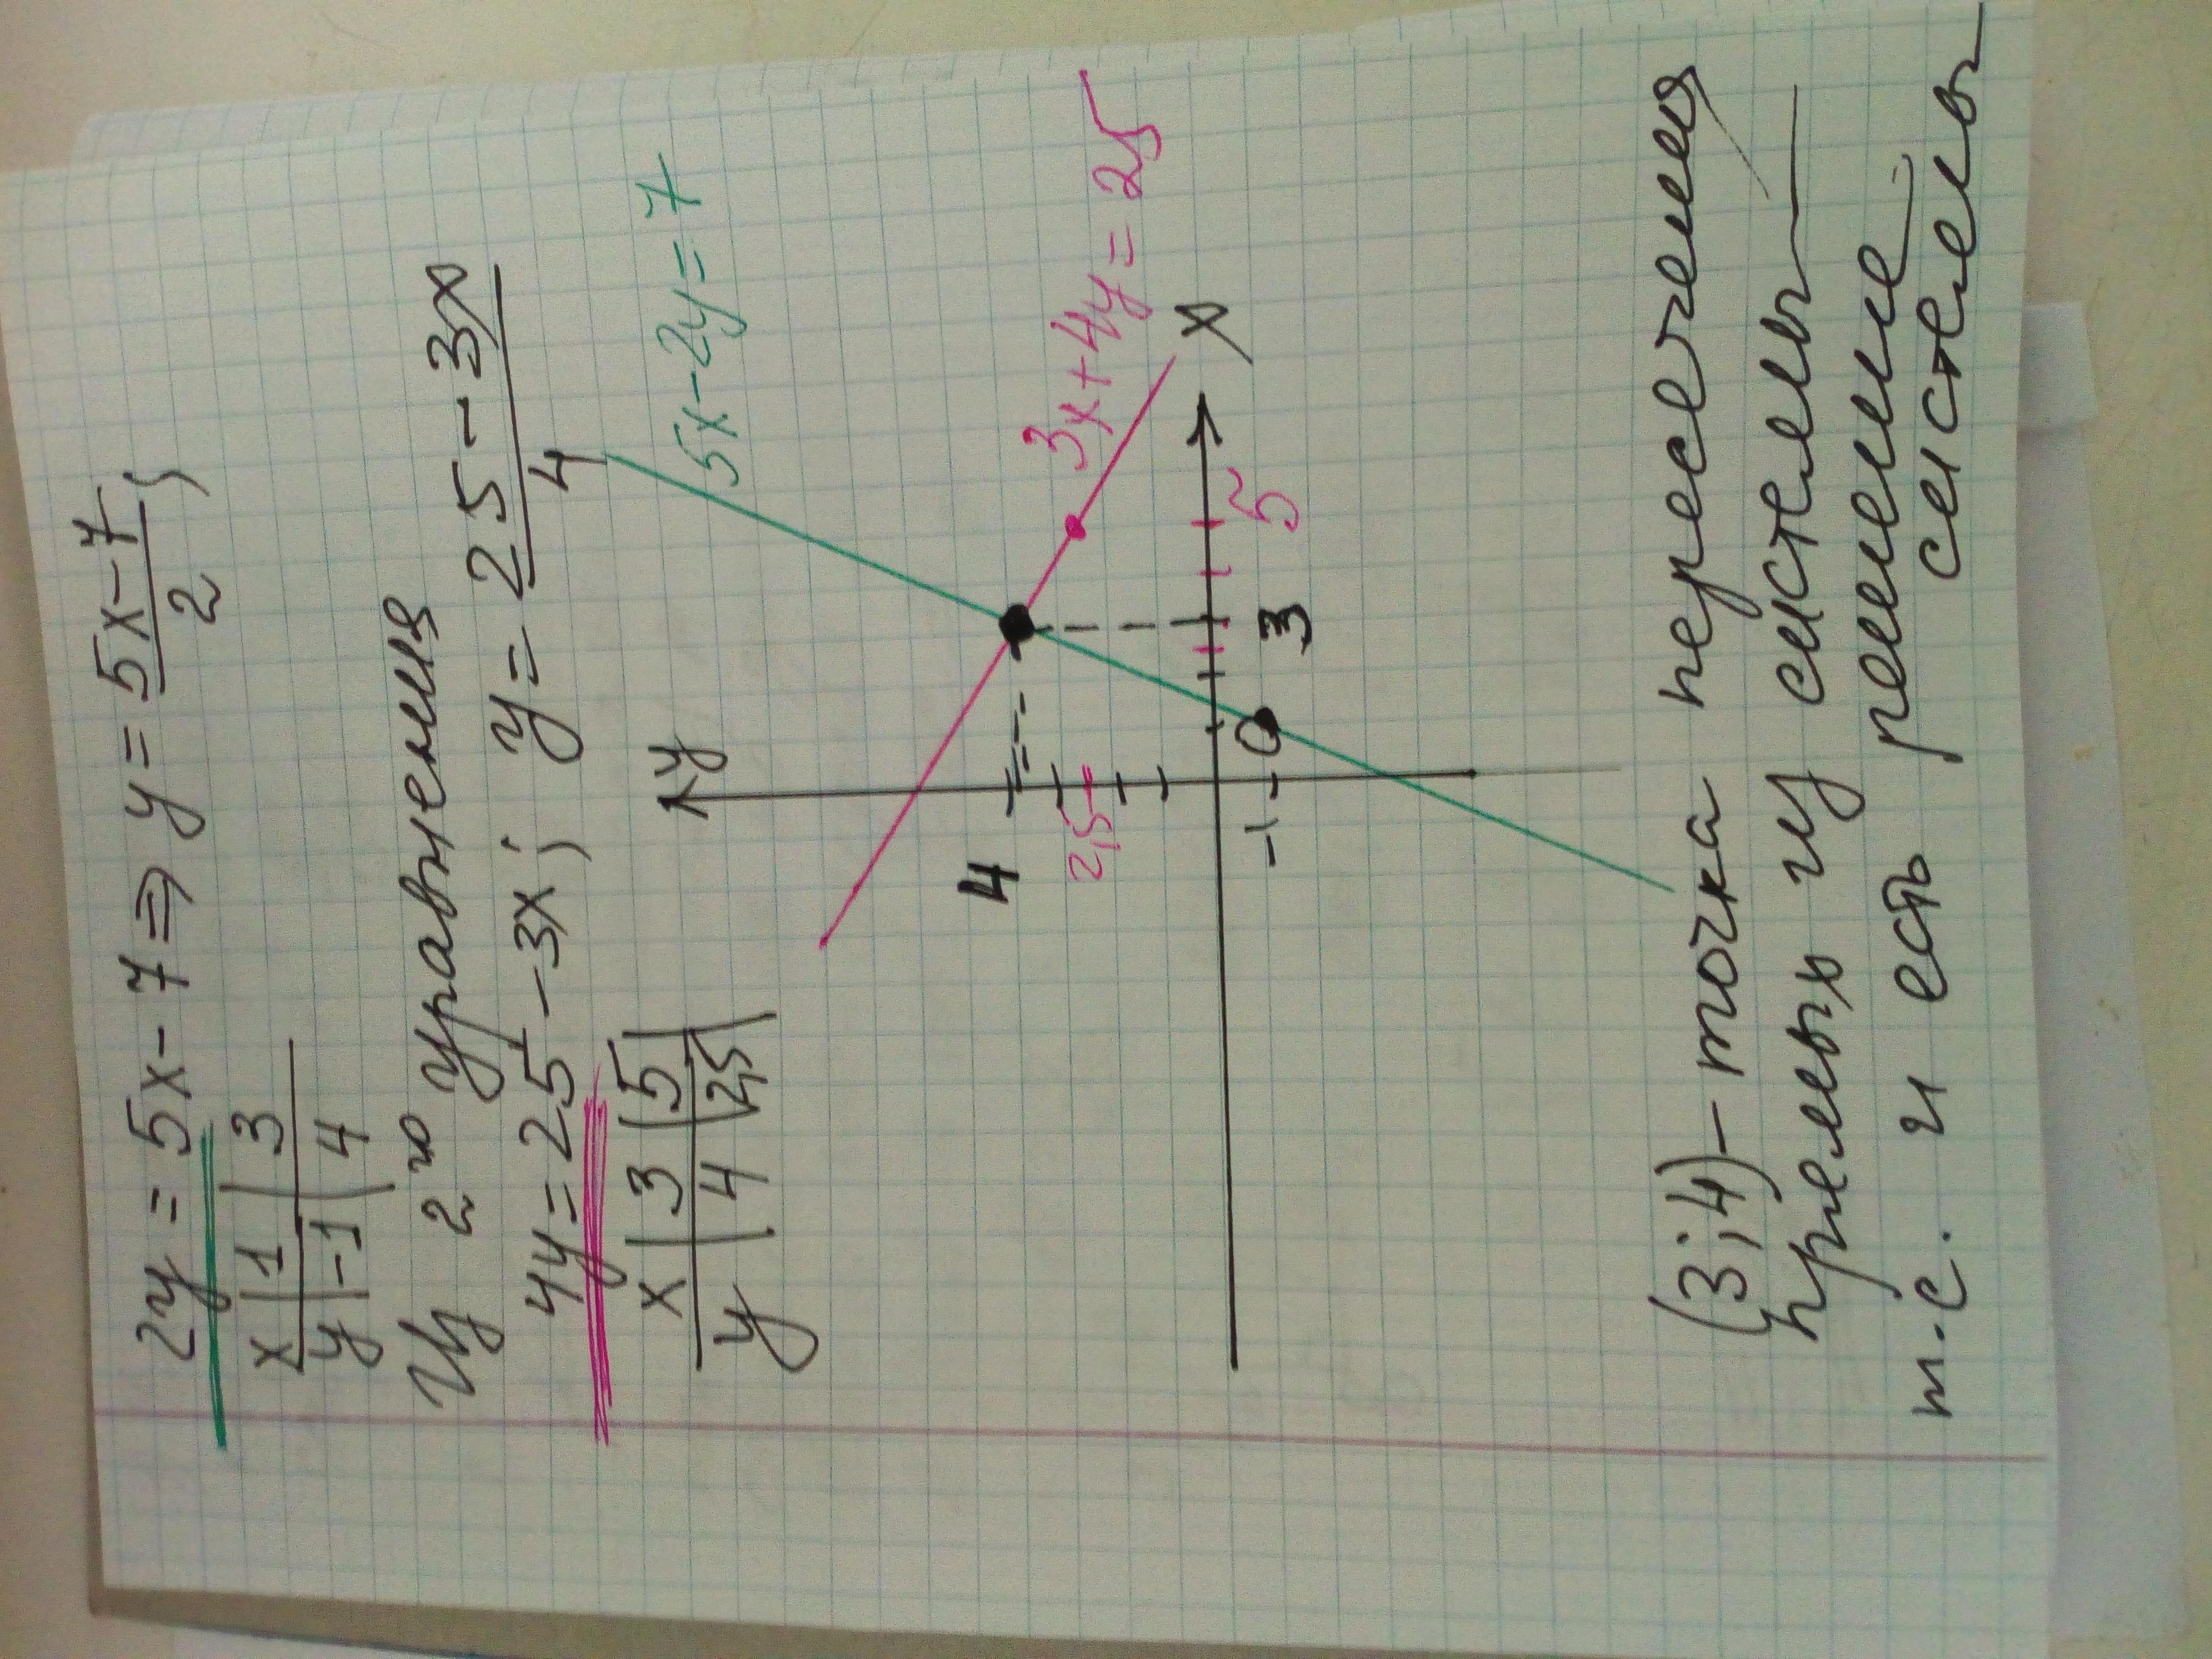 2y = 5x - 7 ⇒ y = (5x-7)/2;
x | 1 | 3
y | -1 | 4
Из 2го уравнения
4y = 25 - 3x; y = (25-3x)/4
x | 3 | 5
y | 4 | 2,5
y
5x-2y=7
4
3x+4y=25
2,5
x
0
3
5
-1
(3;4) - точка пересечения
прямых из системы
т.е. и есть решение
системы